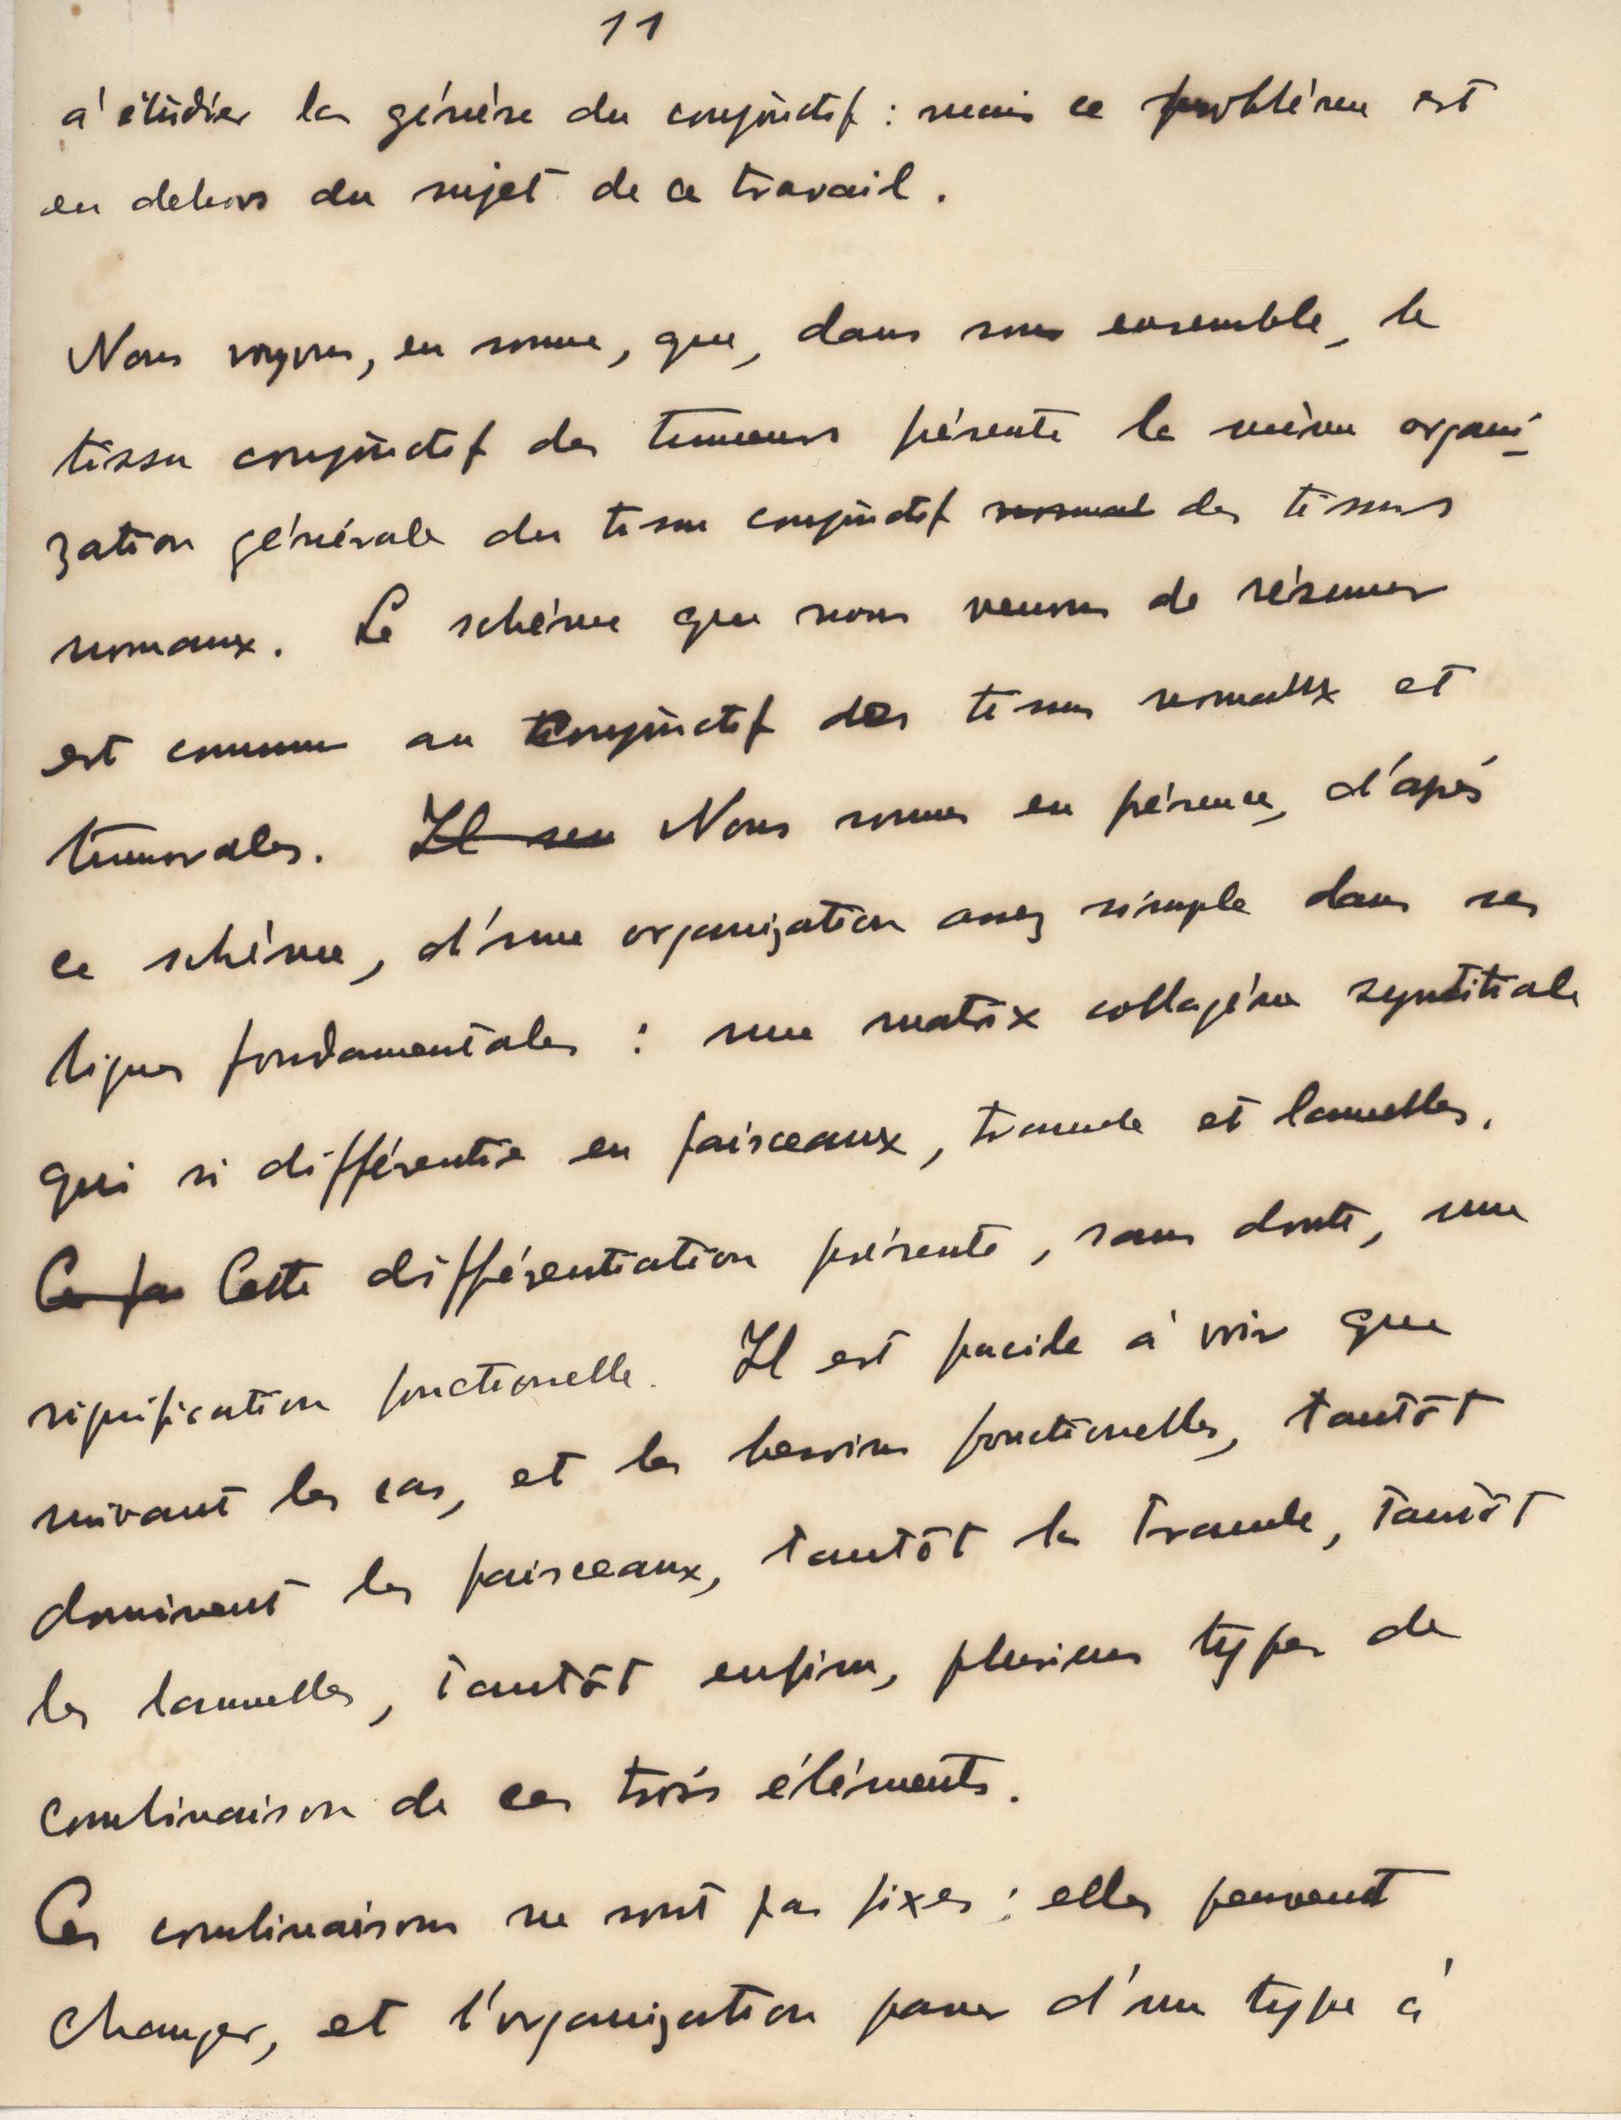 11
à étudier la génèse du conjonctif : mais ce problème est
en dehors du sujet de ce travail.
Nous voyons, en somme, que, dans son ensemble, le
tissu conjonctif des tumeurs présente la même organi-
zation générale du tissu conjonctif normal des tissus
normaux. Le schéme que nous venons de résumer
est commun au conjonctif des tissus normaux et
tumorales. Il se Nous sommes en présence, d'après
ce schème, d'une organization assez simple dans ses
lignes fondamentales : une matrix collagène syntitiale
qui si différentie en faisceaux, tramule et lamelles.
Ce fa Cette différentiation présente, sans doute, une
signification fonctionelle. Il est facile à voir que
suivant les cas, et les besoins fonctionelles, tantôt
dominent les faisceaux, tantôt la tramule, tantôt
les lamelles, tantôt enfin, plusieurs types de
combinaison de ces trois éléments.
Ces combinaisons ne sont pas fixes : elles peuvent
changer, et l'organization passer d'un type à